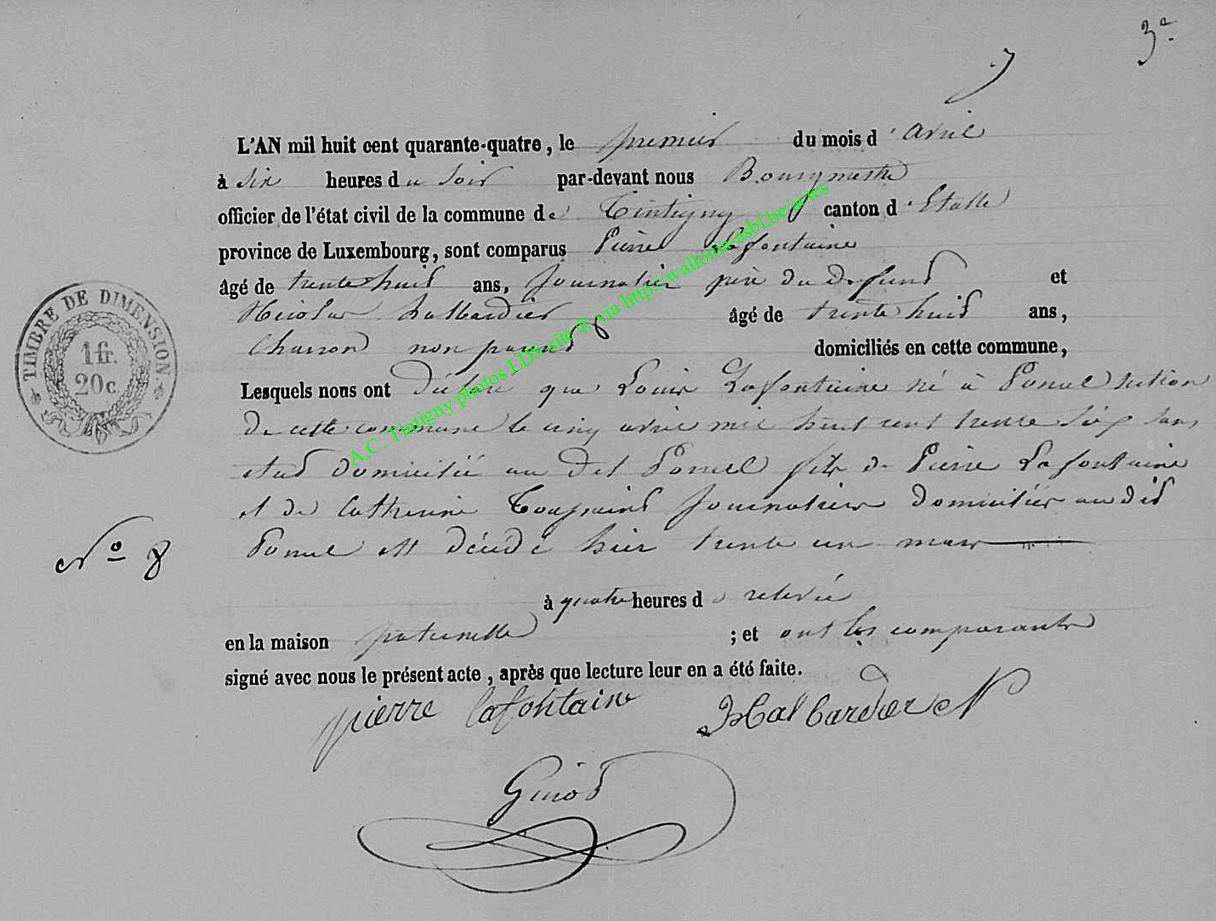 3e
7
L'AN mil huit cent quarante-quatre, le premier du mois d'avril
à six heures du soir par-devant nous Bourgmestre
officier de l'état civil de la commune de Tintigny canton d'Etalle
province de Luxembourg, sont comparus Pierre Lafontaine
âgé de trente huit ans, Journalier père du defunt et
Nicolas Halbardier âgé de trente huit ans,
Charron non parent domiciliés en cette commune,
Lesquels nous ont déclaré que Louis Lafontaine né à Ponsel section
de cette commune le cinq avril mil huit cent trente six sans
etat domicilié au dit Ponsel fils de Pierre Lafontaine
et de Catherine Toussaint Journaliers domiciliés au dit
Ponsel est décédé hier trente un mars
à quatre heures de relevée
en la maison paternelle ; et ont les comparants
signé avec nous le présent acte, après que lecture leur en a été faite.
pierre lafontaine Halbardier N
TIMBRE DE DIMENSION
1 fr.
20 c.
No 8
A.C. Tintigny photos LDS via http://wallonia-asbl.be/actes